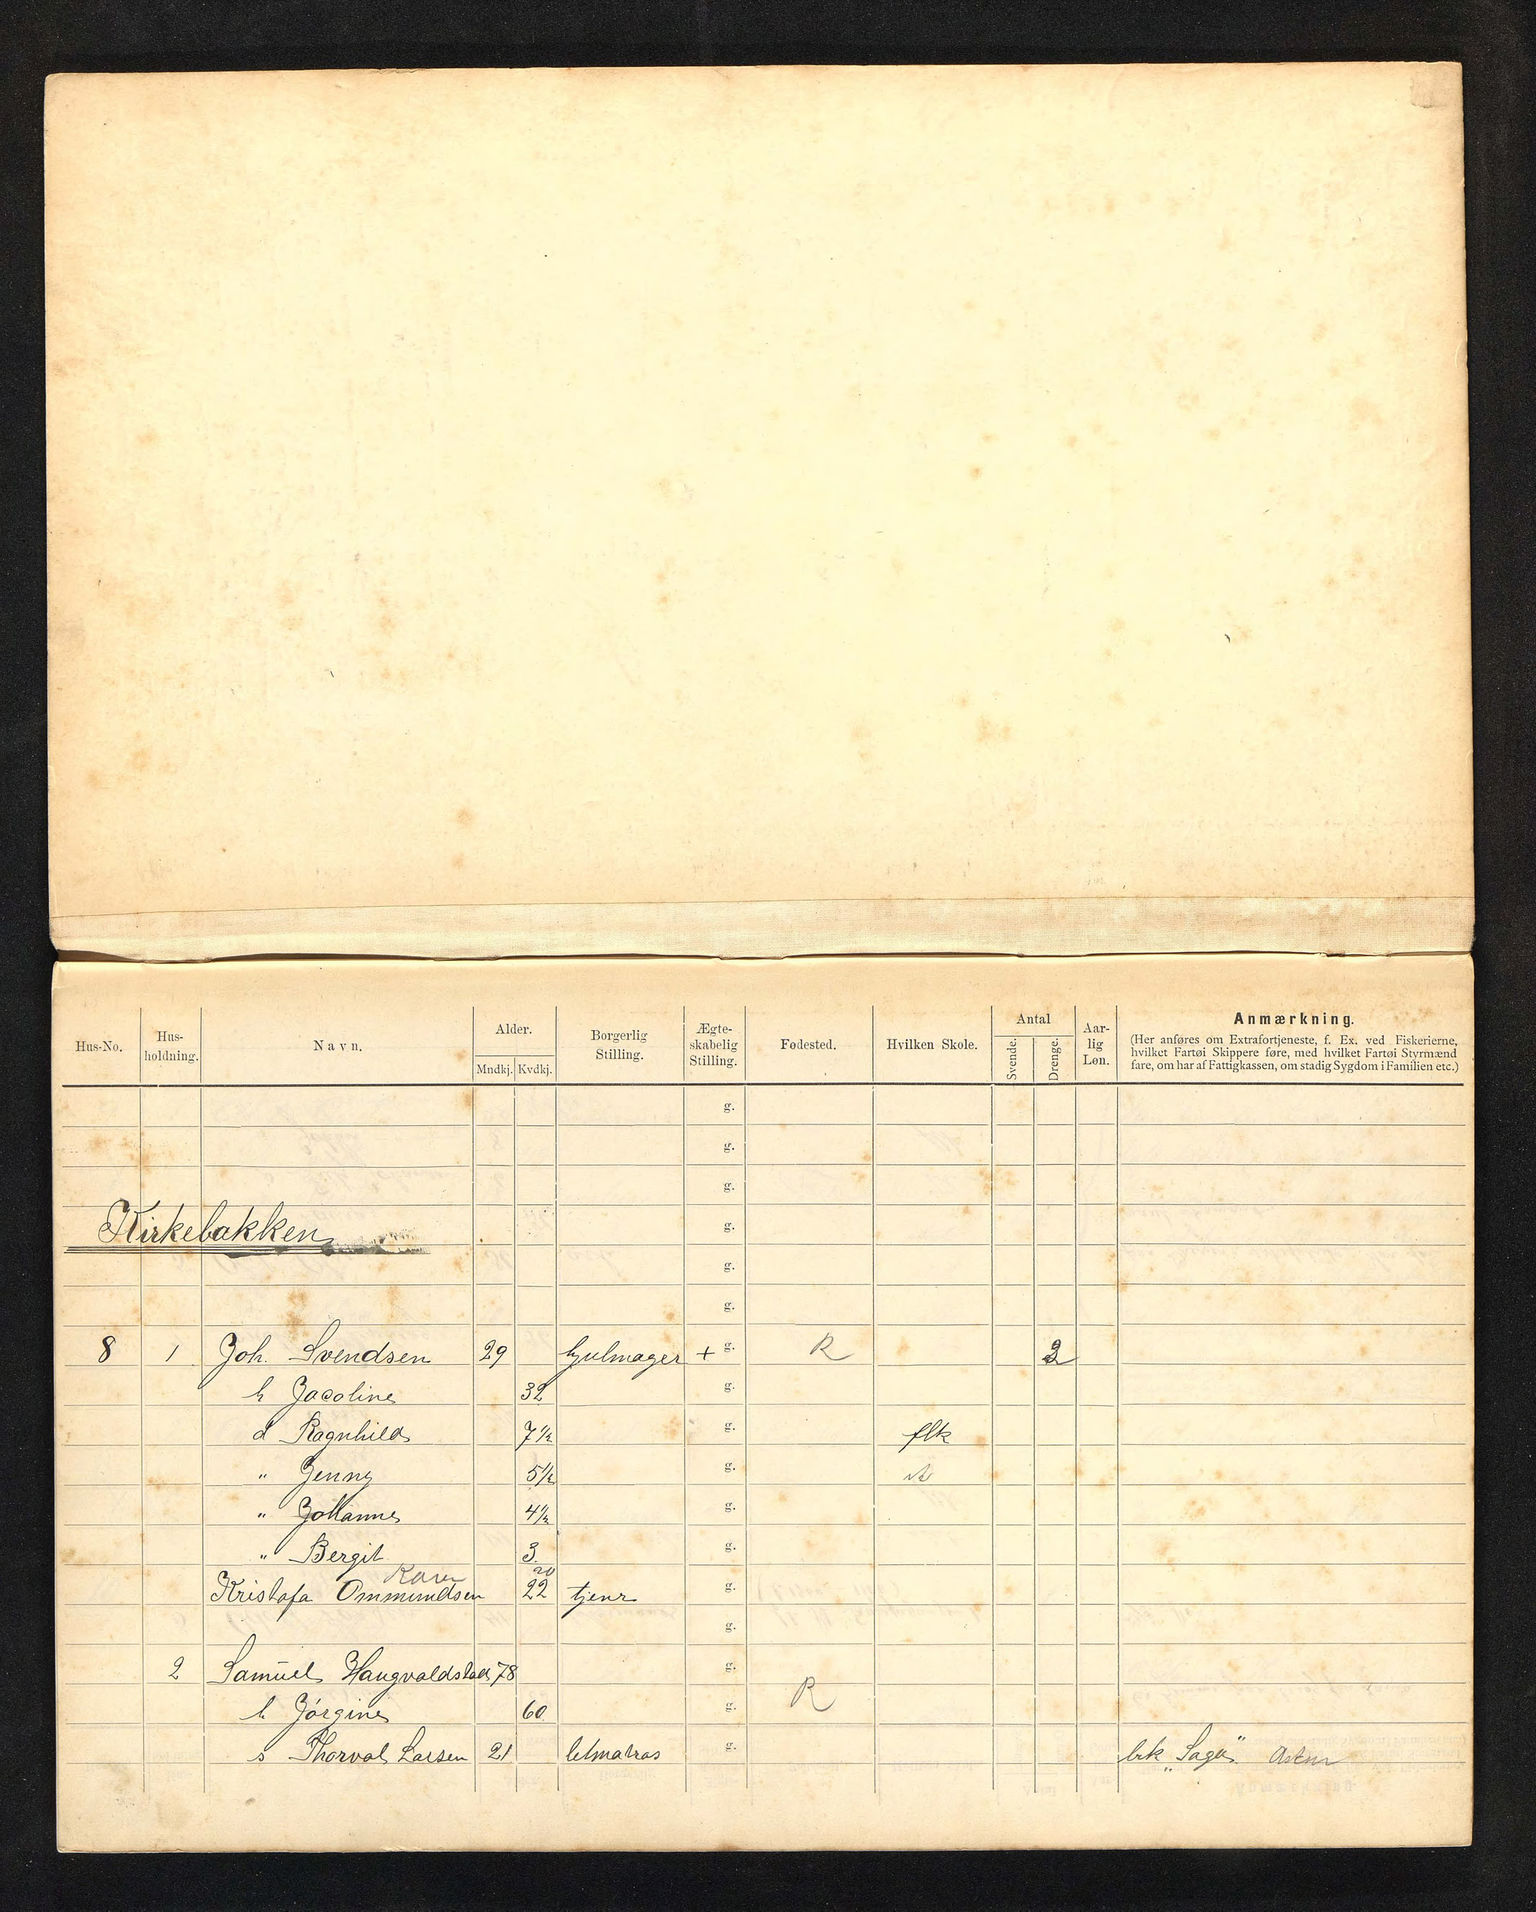 Hus-No. Hus-holdning. Navn. Alder. Mndkj. Kvdkj. Borgerlig Stilling. Ægte-skabelig Stilling. Fødested. Hvilken Skole. Antal Svende. Drenge. Aar-lig Løn. Anmærkning.
(Her anføres om Extrafortjeneste, f. Ex. ved Fiskerierne,
hvilket Fartøi Skippere føre, med hvilket Fartøi Styrmænd
fare, om har af Fattigkassen, om stadig Sygdom i Familien etc.)
g.
g.
g.
Kirkebakken g.
g.
g.
8 1 Joh. Svendsen 29 hjulmager + g. R 2
h Jacoline 32 g.
d Ragnhild 7½ g. flk
" Jenny 5½ g.
" Johanne 4½ g.
" Bergit 3 g.
Karen 20
Kristofa Ommundsen 22 tjenr g.
g.
2 Samuel Haugvaldstad 78 g.
h Jörgine 60 g. R
s Thorval Larsen 21 letmatros g. brk "Saga"